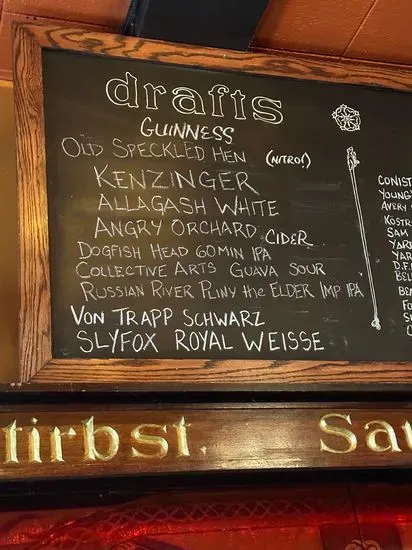 drafts
GUINNESS
OLD SPECKLED HEN (NITRO!)
KENZINGER
ALLAGASH WHITE
ANGRY ORCHARD CIDER
DOGFISH HEAD 60 MIN IPA
COLLECTIVE ARTS GUAVA SOUR
RUSSIAN RIVER PLINY the ELDER IMP IPA
VON TRAPP SCHWARZ
SLYFOX ROYAL WEISSE
CONIST
YOUNG
AVERY
KOSTR
SAM
YAR
YAR
D.F.
BEL
BE
FO
S
tirbst. Sau